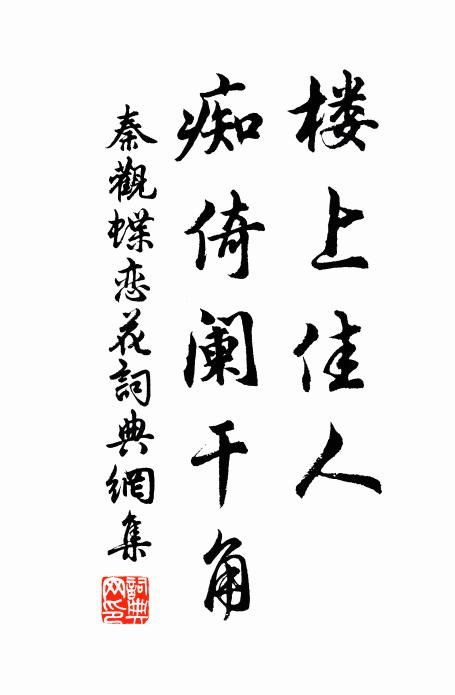 楼上佳人
痴倚阑干角
秦觀蝶恋花詞典網集
詞典网印